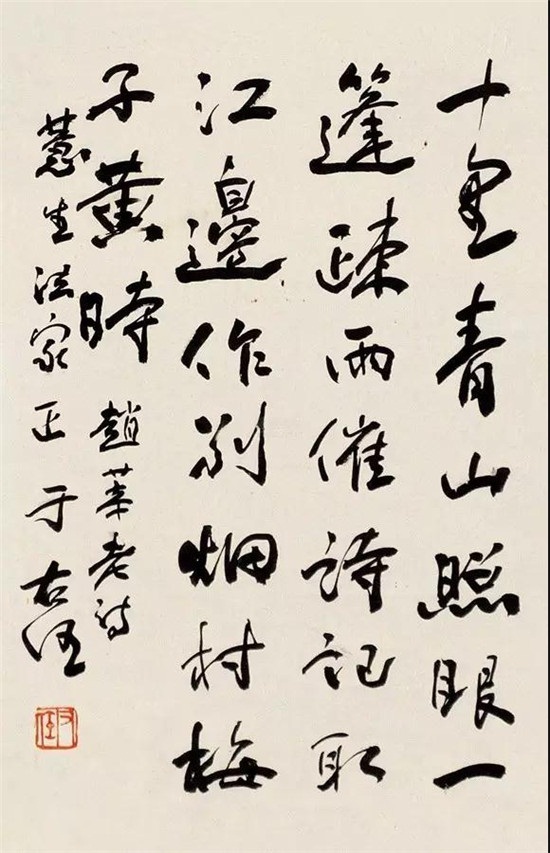 十里青山照眼一
篷疎雨催詩記取
江邊作別烟村梅
子黄時 趙老詩
蕙生法家正 于右任
右任